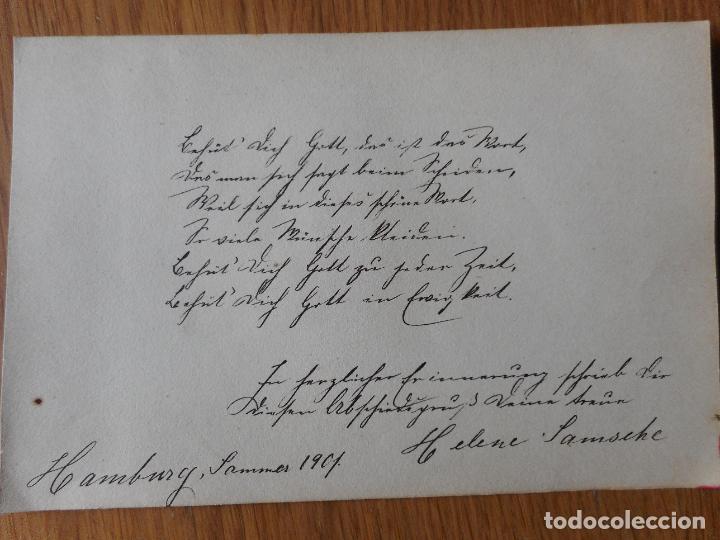 Behüt' Dich Gott, das ist das Wort,
Das man sich sagt beim Scheiden,
Weil sich in dieses schöne Wort,
So viele Wünsche kleiden.
Behüt' Dich Gott zu jeder Zeit,
Behüt' Dich Gott in Ewigkeit.
In herzlicher Erinnerung schrieb Dir
diesen Abschiedsgruß Deine treue
Helene
Hamburg, Sommer 1901.
todocoleccion
todocoleccion.net